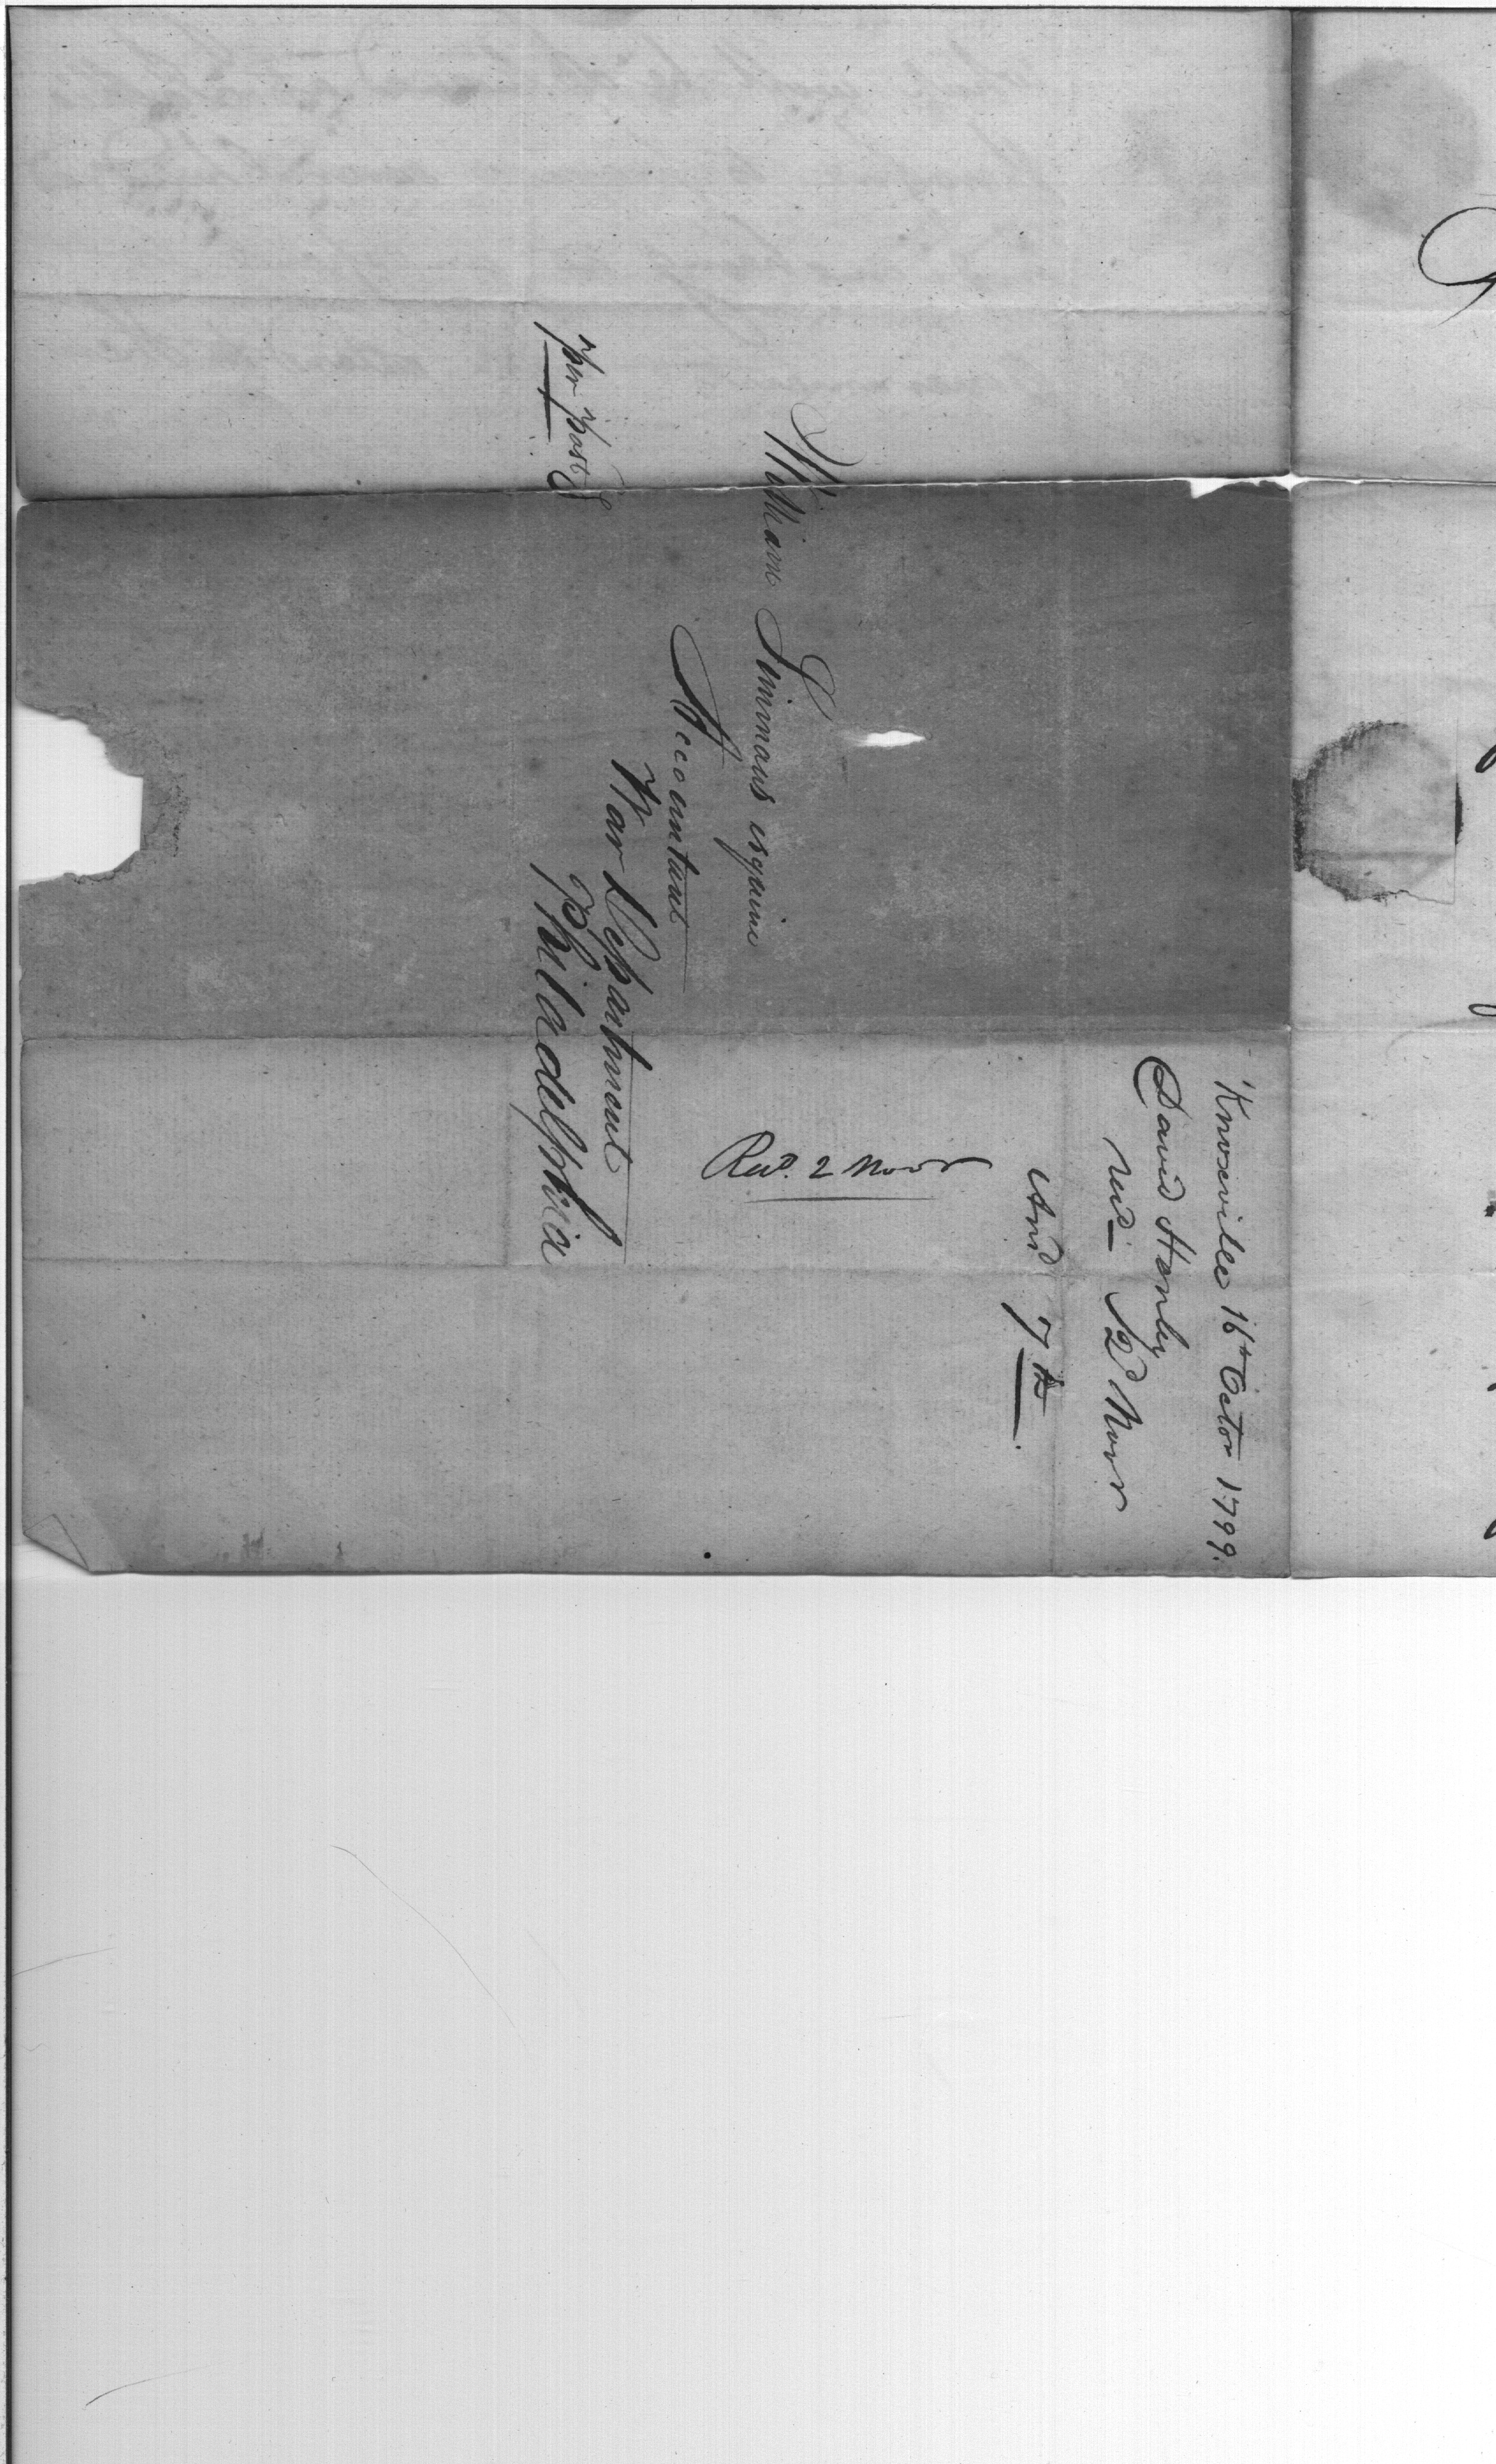 Knoxville 16th Octor 1799.
David Henley
Recd. 2d Novr
Ansd 7th
Recd. 2 Novr
William Simmons esquire
Accountant
War Department
Philadelphia
Per Post